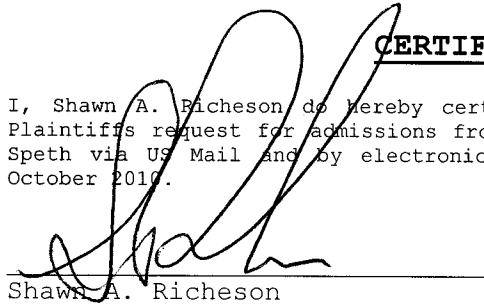 CERTIF
I, Shawn A. Richeson do hereby cert
Plaintiffs request for admissions fro
Speth via US Mail and by electronic
October 2010.
Shawn A. Richeson